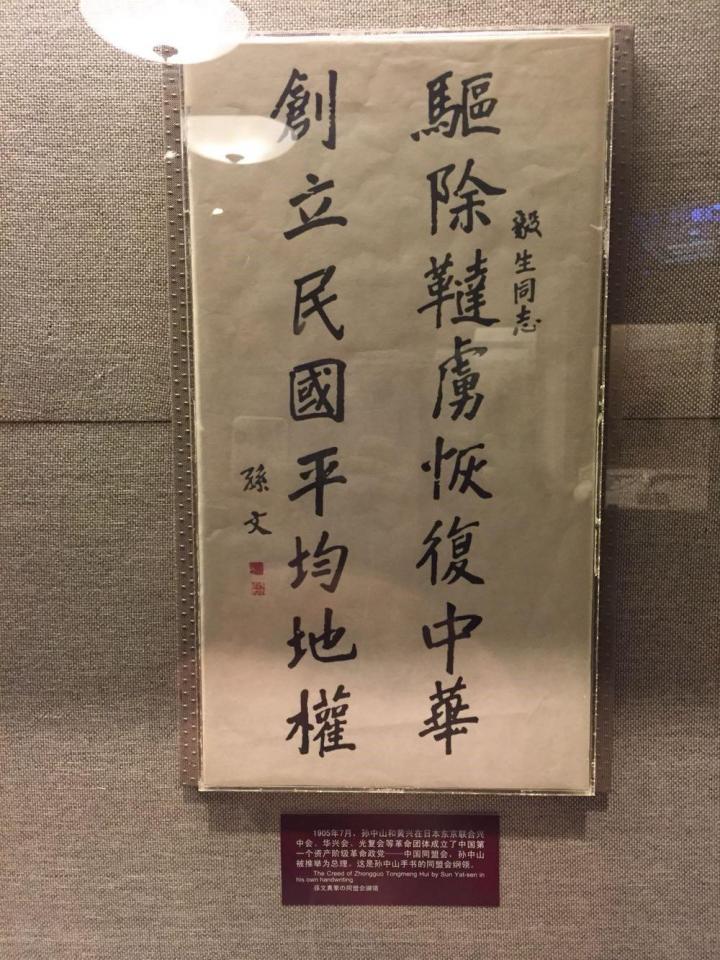 毅生同志
驅除韃虜恢復中華
創立民國平均地權
孫文
1905年7月，孙中山和黄兴在日本东京联合兴
中会、华兴会、光复会等革命团体成立了中国第
一个资产阶级革命政党——中国同盟会，孙中山
被推举为总理。这是孙中山手书的同盟会纲领。
The Creed of Zhongguo Tongmeng Hui by Sun Yat-sen in
his own handwriting
孫文真筆の同盟会綱領